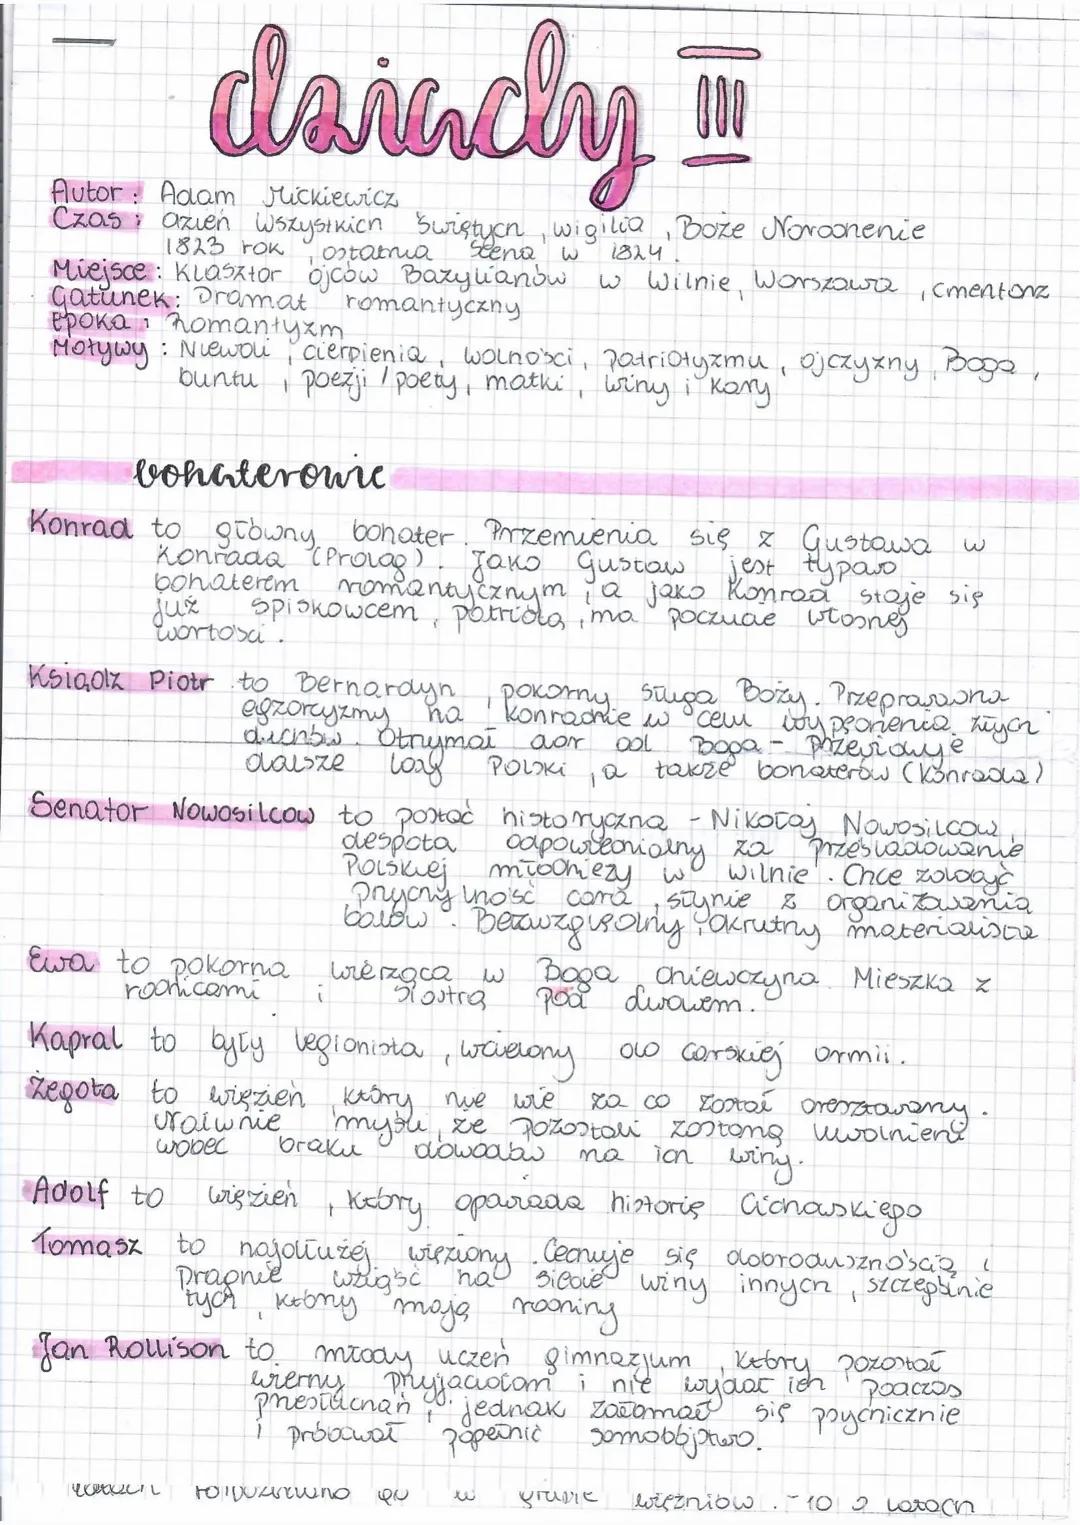 dziady III
Autor: Adam Mickiewicz
Czas: dzień Wszystkich Świętych, wigilia, Boże Narodzenie
1823 rok, ostatnia scena w 1824.
Miejsce: Klasztor ojców Bazylianów w Wilnie, Warszawa, cmentarz
Gatunek: Dramat romantyczny
Epoka: Romantyzm
Motywy: Niewoli, cierpienia, wolności, patriotyzmu, ojczyzny, Boga,
buntu, poezji / poety, matki, winy i kary
bohaterowie
Konrad to główny bohater. Przemienia się z Gustawa w
Konrada (Prolog). Jako Gustaw jest typowo
bohaterem romantycznym, a jako Konrad staje się
już spiskowcem, patriotą, ma poczucie własnej
wartości.
Ksiądz Piotr to Bernardyn, pokorny sługa Boży. Przeprowadza
egzorcyzmy na Konradzie w celu wypędzenia złych
duchów. Otrzymał dar od Boga - przewiduje
dalsze losy Polski, a także bohaterów (Konrada)
Senator Nowosilcow to postać historyczna - Nikołaj Nowosilcow,
despota odpowiedzialny za prześladowanie
Polskiej młodzieży w Wilnie. Chce zdobyć
przychylność cara, słynie z organizowania
balów. Bezwzględny, okrutny materialista
Ewa to pokorna wierząca w Boga dziewczyna. Mieszka z
rodzicami i siostrą pod dworem.
Kapral to były legionista, wcielony do carskiej armii.
Żegota to więzień, który nie wie za co został aresztowany.
Naiwnie myśli, że pozostali zostaną uwolnieni
wobec braku dowodów na ich winy.
Adolf to więzień, który opowiada historię Cichowskiego
Tomasz to najdłużej więziony. Cechuje się dobrodusznością i
Pragnie wziąść na siebie winy innych, szczególnie
tych, którzy mają rodziny
Jan Rollison to młody uczeń gimnazjum, który pozostał
wierny przyjaciołom i nie wydał ich podczas
przesłuchań, jednak załamał się psychicznie
i próbował popełnić samobójstwo.
w grupie więźniów. - 10 2 latach